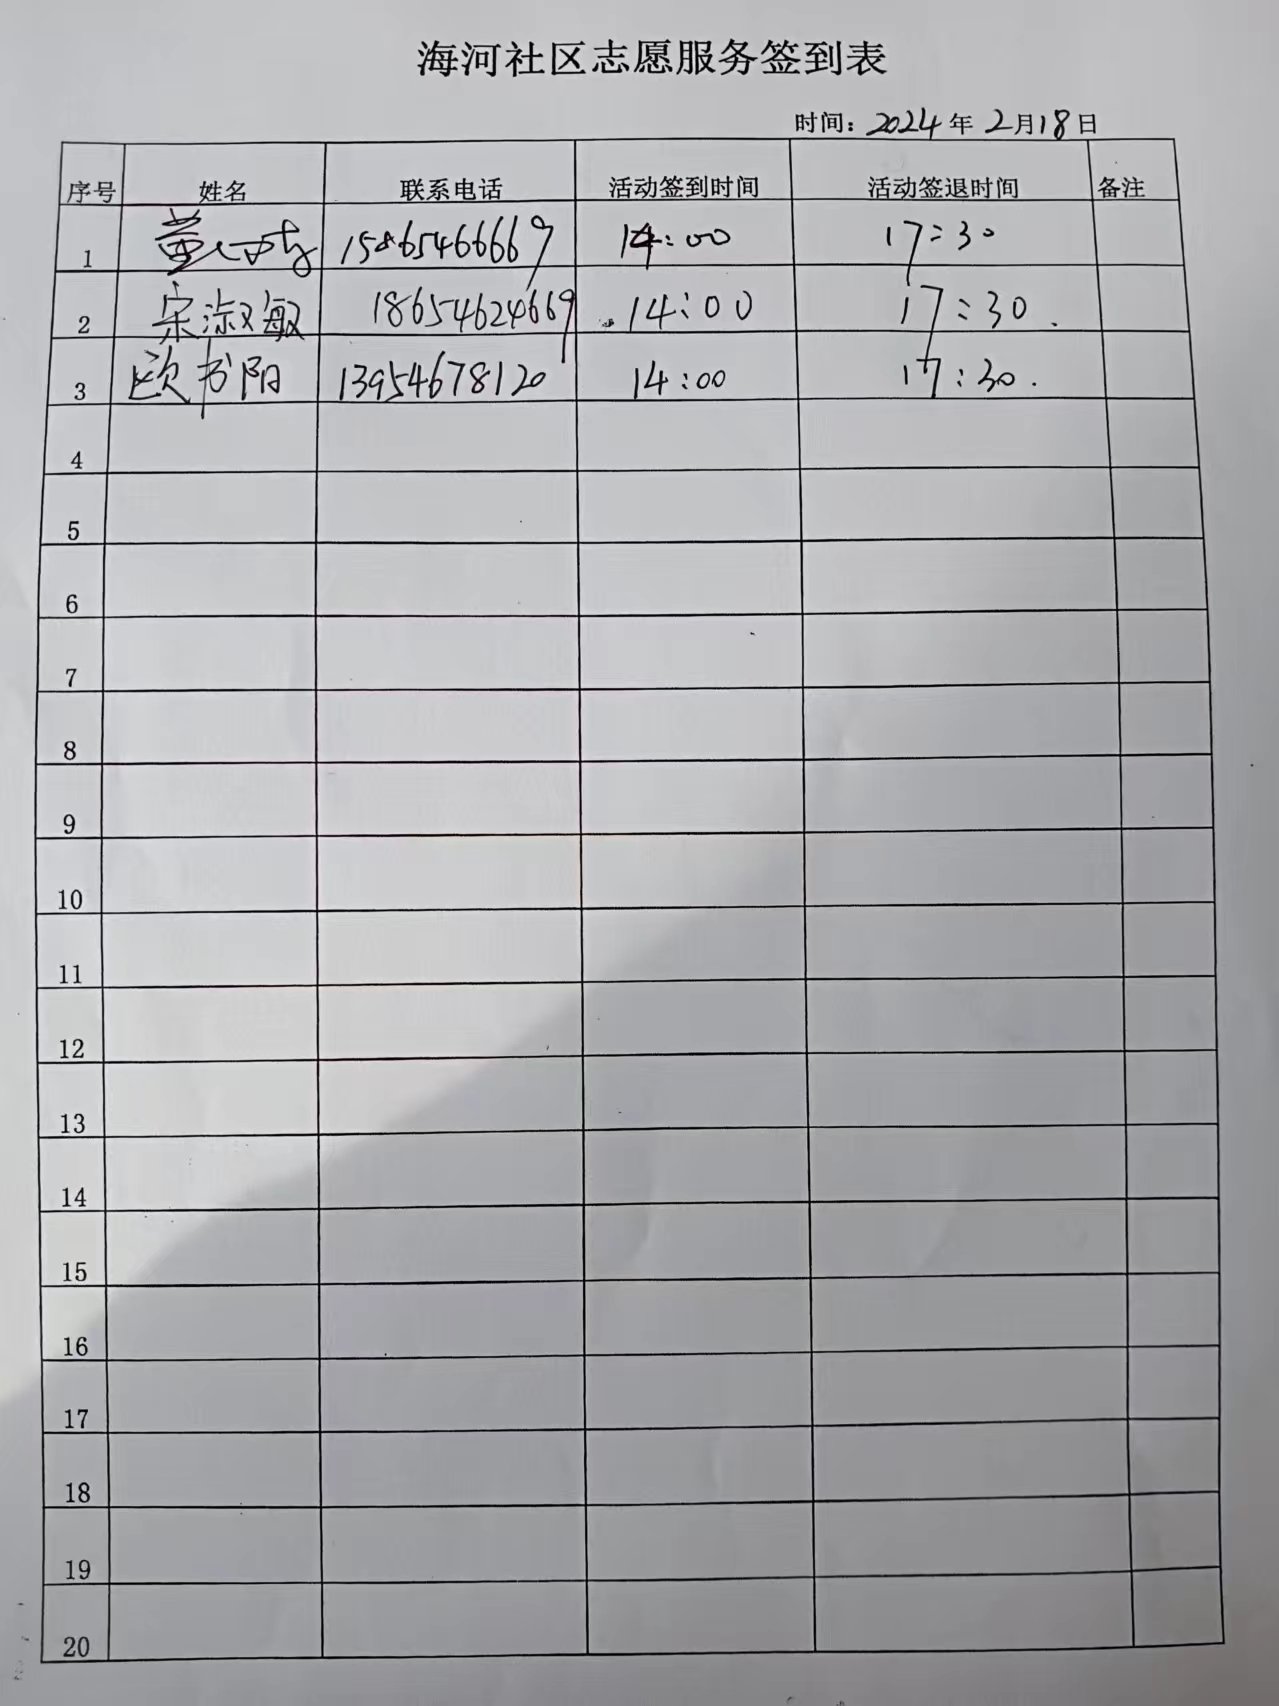 海河社区志愿服务签到表
时间：2024年 2月18日
序号 姓名 联系电话 活动签到时间 活动签退时间 备注
1 董 15865466669 14:00 17:30
2 宋淑敏 18654624669 14:00 17:30
3 欧书阳 13954678120 14:00 17:30
4
5
6
7
8
9
10
11
12
13
14
15
16
17
18
19
20